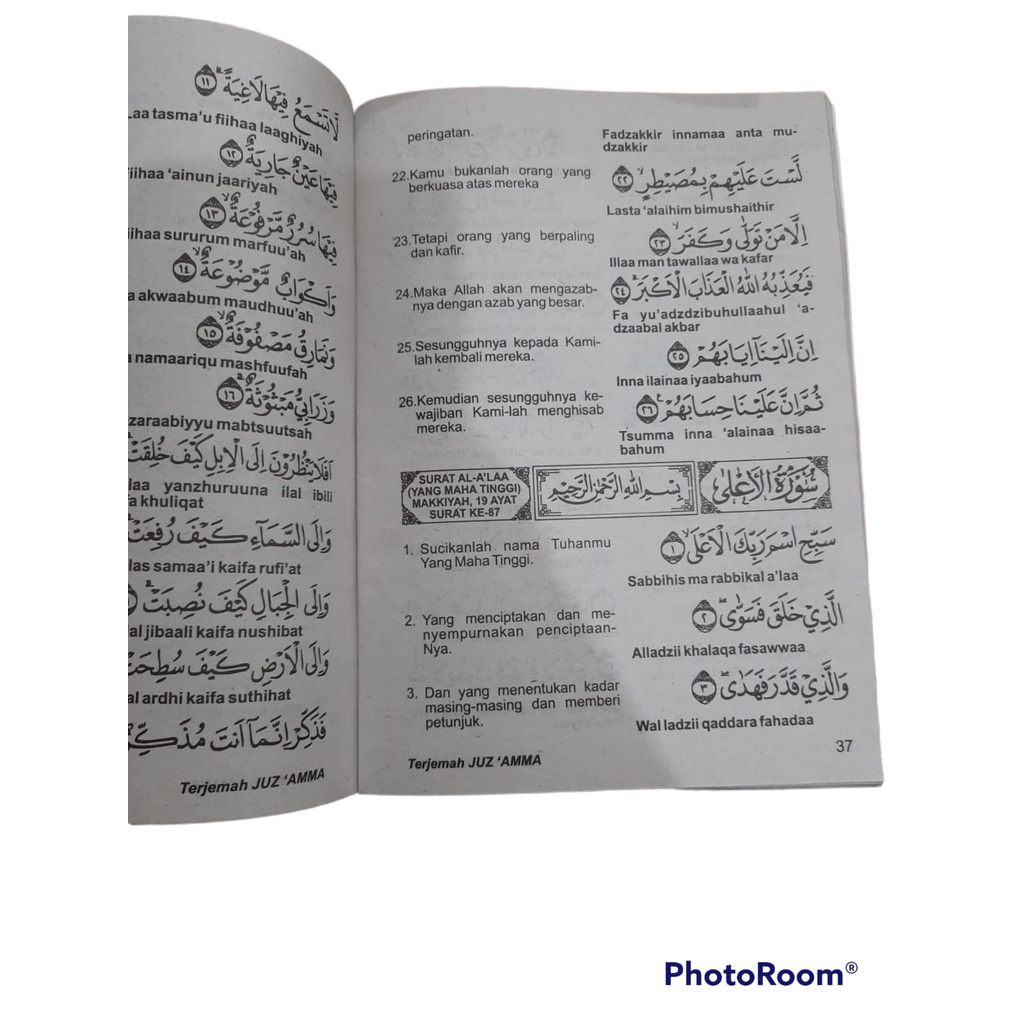 لَا تَسْمَعُ فِيْهَا لَاغِيَةً ۗ ١١
Laa tasma'u fiihaa laaghiyah
فِيْهَا عَيْنٌ جَارِيَةٌ ۘ ١٢
iihaa 'ainun jaariyah
فِيْهَا سُرُرٌ مَّرْفُوْعَةٌ ۙ ١٣
iihaa sururum marfuu'ah
وَاَكْوَابٌ مَّوْضُوْعَةٌ ۙ ١٤
a akwaabum maudhuu'ah
وَنَمَارِقُ مَصْفُوْفَةٌ ۙ ١٥
a namaariqu mashfuufah
وَزَرَابِيُّ مَبْثُوْثَةٌ ۗ ١٦
zaraabiyyu mabtsuutsah
اَفَلَا يَنْظُرُوْنَ اِلَى الْاِبِلِ كَيْفَ خُلِقَتْ
laa yanzhuruuna ilal ibili
fa khuliqat
وَاِلَى السَّمَآءِ كَيْفَ رُفِعَتْ
las samaa'i kaifa rufi'at
وَاِلَى الْجِبَالِ كَيْفَ نُصِبَتْ
al jibaali kaifa nushibat
وَاِلَى الْاَرْضِ كَيْفَ سُطِحَتْ
al ardhi kaifa suthihat
فَذَكِّرْ اِنَّمَآ اَنْتَ مُذَكِّرٌ
Terjemah JUZ 'AMMA
peringatan.
Fadzakkir innamaa anta mu-
dzakkir
22.Kamu bukanlah orang yang
berkuasa atas mereka
لَّسْتَ عَلَيْهِمْ بِمُصَيْطِرٍ ۙ ٢٢
Lasta 'alaihim bimushaithir
23.Tetapi orang yang berpaling
dan kafir.
اِلَّا مَنْ تَوَلّٰى وَكَفَرَ ۙ ٢٣
Illaa man tawallaa wa kafar
24.Maka Allah akan mengazab-
nya dengan azab yang besar.
فَيُعَذِّبُهُ اللّٰهُ الْعَذَابَ الْاَكْبَرَ ۗ ٢٤
Fa yu'adzdzibuhullaahul 'a-
dzaabal akbar
25.Sesungguhnya kepada Kami-
lah kembali mereka.
اِنَّ اِلَيْنَآ اِيَابَهُمْ ۙ ٢٥
Inna ilainaa iyaabahum
26.Kemudian sesungguhnya ke-
wajiban Kami-lah menghisab
mereka.
ثُمَّ اِنَّ عَلَيْنَا حِسَابَهُمْ ۖ ٢٦
Tsumma inna 'alainaa hisaa-
bahum
SURAT AL-A'LAA
(YANG MAHA TINGGI)
MAKKIYAH, 19 AYAT
SURAT KE-87
بِسْمِ اللّٰهِ الرَّحْمٰنِ الرَّحِيْمِ
سُوْرَةُ الْاَعْلٰى
1. Sucikanlah nama Tuhanmu
Yang Maha Tinggi.
سَبِّحِ اسْمَ رَبِّكَ الْاَعْلَى ۙ ١
Sabbihis ma rabbikal a'laa
2. Yang menciptakan dan me-
nyempurnakan penciptaan-
Nya.
الَّذِيْ خَلَقَ فَسَوّٰى ۖ ٢
Alladzii khalaqa fasawwaa
3. Dan yang menentukan kadar
masing-masing dan memberi
petunjuk.
وَالَّذِيْ قَدَّرَ فَهَدٰى ۖ ٣
Wal ladzii qaddara fahadaa
37
Terjemah JUZ 'AMMA
PhotoRoom®